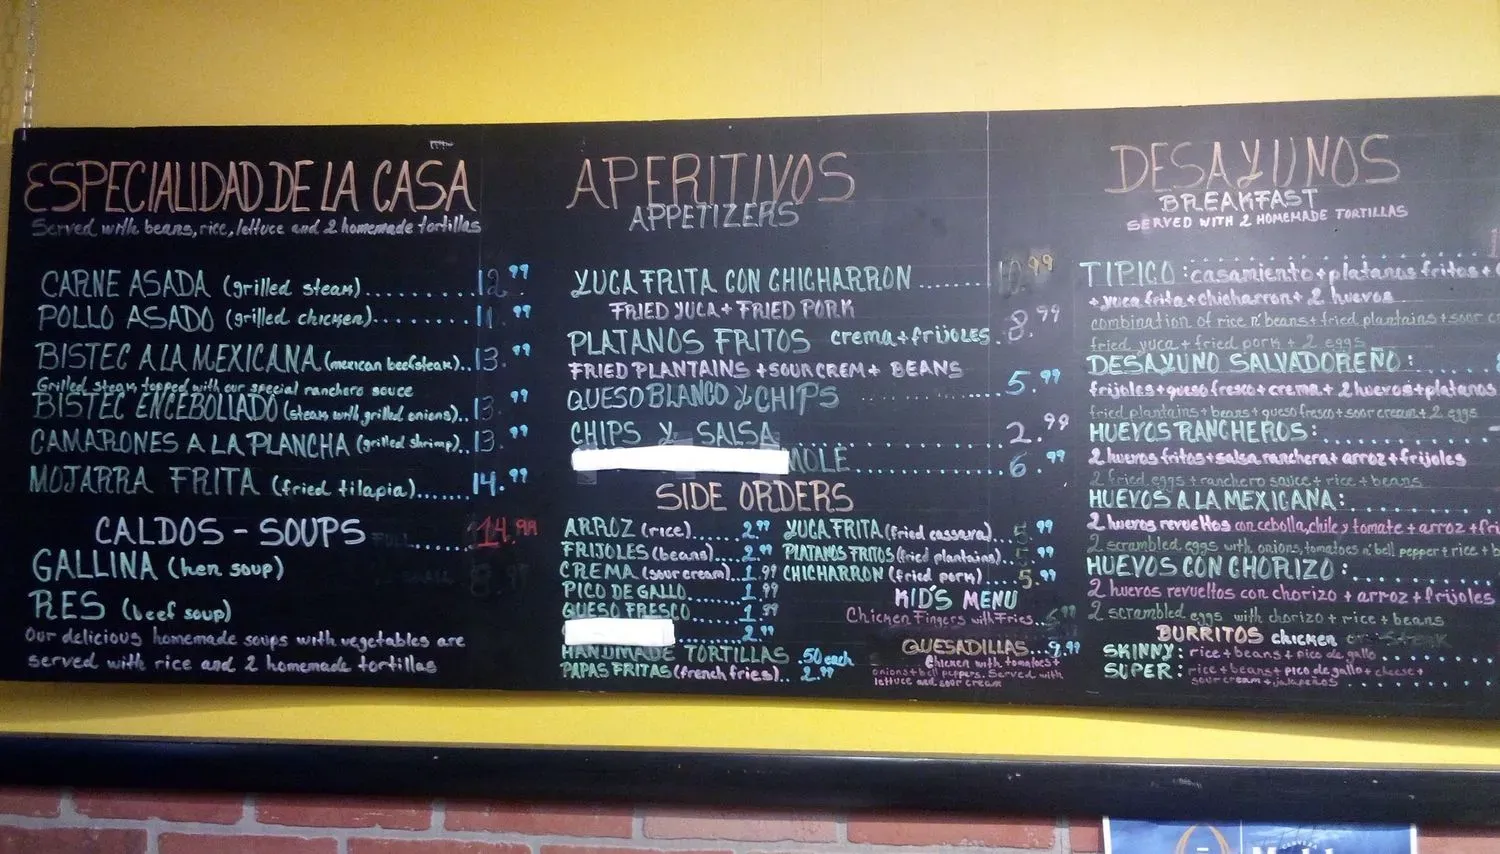 ESPECIALIDAD DE LA CASA
Served with beans, rice, lettuce and 2 homemade tortillas
CARNE ASADA (grilled steak)........12.99
POLLO ASADO (grilled chicken)........11.99
BISTEC A LA MEXICANA (mexican beefsteak)..13.99
Grilled steak topped with our special ranchero sauce
BISTEC ENCEBOLLADO (steak with grilled onions)..13.99
CAMARONES A LA PLANCHA (grilled shrimp)..13.99
MOJARRA FRITA (fried tilapia)......14.99
CALDOS - SOUPS FULL......14.99
GALLINA (hen soup)
RES (beef soup)
Our delicious homemade soups with vegetables are
served with rice and 2 homemade tortillas
APERITIVOS
APPETIZERS
YUCA FRITA CON CHICHARRON
FRIED YUCA + FRIED PORK
PLATANOS FRITOS crema + frijoles.8.99
FRIED PLANTAINS + SOUR CREM + BEANS
QUESO BLANCO y CHIPS..............5.99
CHIPS y SALSA 2.99
MOLE..............6.99
SIDE ORDERS
ARROZ (rice)......2.99
FRIJOLES (beans)...2.99
CREMA (sour cream)..1.99
PICO DE GALLO......1.99
QUESO FRESCO......1.99
2.99
HANDMADE TORTILLAS .50 each
PAPAS FRITAS (french fries)..2.99
YUCA FRITA (fried cassava)..5.99
PLATANOS FRITOS (fried plantains)..5.99
CHICHARRON (fried pork)..5.99
KID'S MENU
Chicken Fingers with Fries..6.99
QUESADILLAS...9.99
Chicken with tomatoes +
onions + bell peppers. Served with
lettuce and sour cream
DESAYUNOS
BREAKFAST
SERVED WITH 2 HOMEMADE TORTILLAS
TIPICO: casamiento + platanos fritos +
+ yuca frita + chicharron + 2 huevos
combination of rice n' beans + fried plantains + sour cr
fried yuca + fried pork + 2 eggs
DESAYUNO SALVADOREÑO:
frijoles + queso fresco + crema + 2 huevos + platanos
fried plantains + beans + queso fresco + sour cream + 2 eggs
HUEVOS RANCHEROS:
2 huevos fritos + salsa ranchera + arroz + frijoles
2 fried eggs + ranchero sauce + rice + beans
HUEVOS A LA MEXICANA:
2 huevos revueltos con cebolla, chile y tomate + arroz + fri
2 scrambled eggs with onions, tomatoes n' bell pepper + rice + b
HUEVOS CON CHORIZO:
2 huevos revueltos con chorizo + arroz + frijoles
2 scrambled eggs with chorizo + rice + beans
BURRITOS chicken or steak
SKINNY: rice + beans + pico de gallo
SUPER: rice + beans + pico de gallo + cheese +
sour cream + jalapeños
CERVEZA